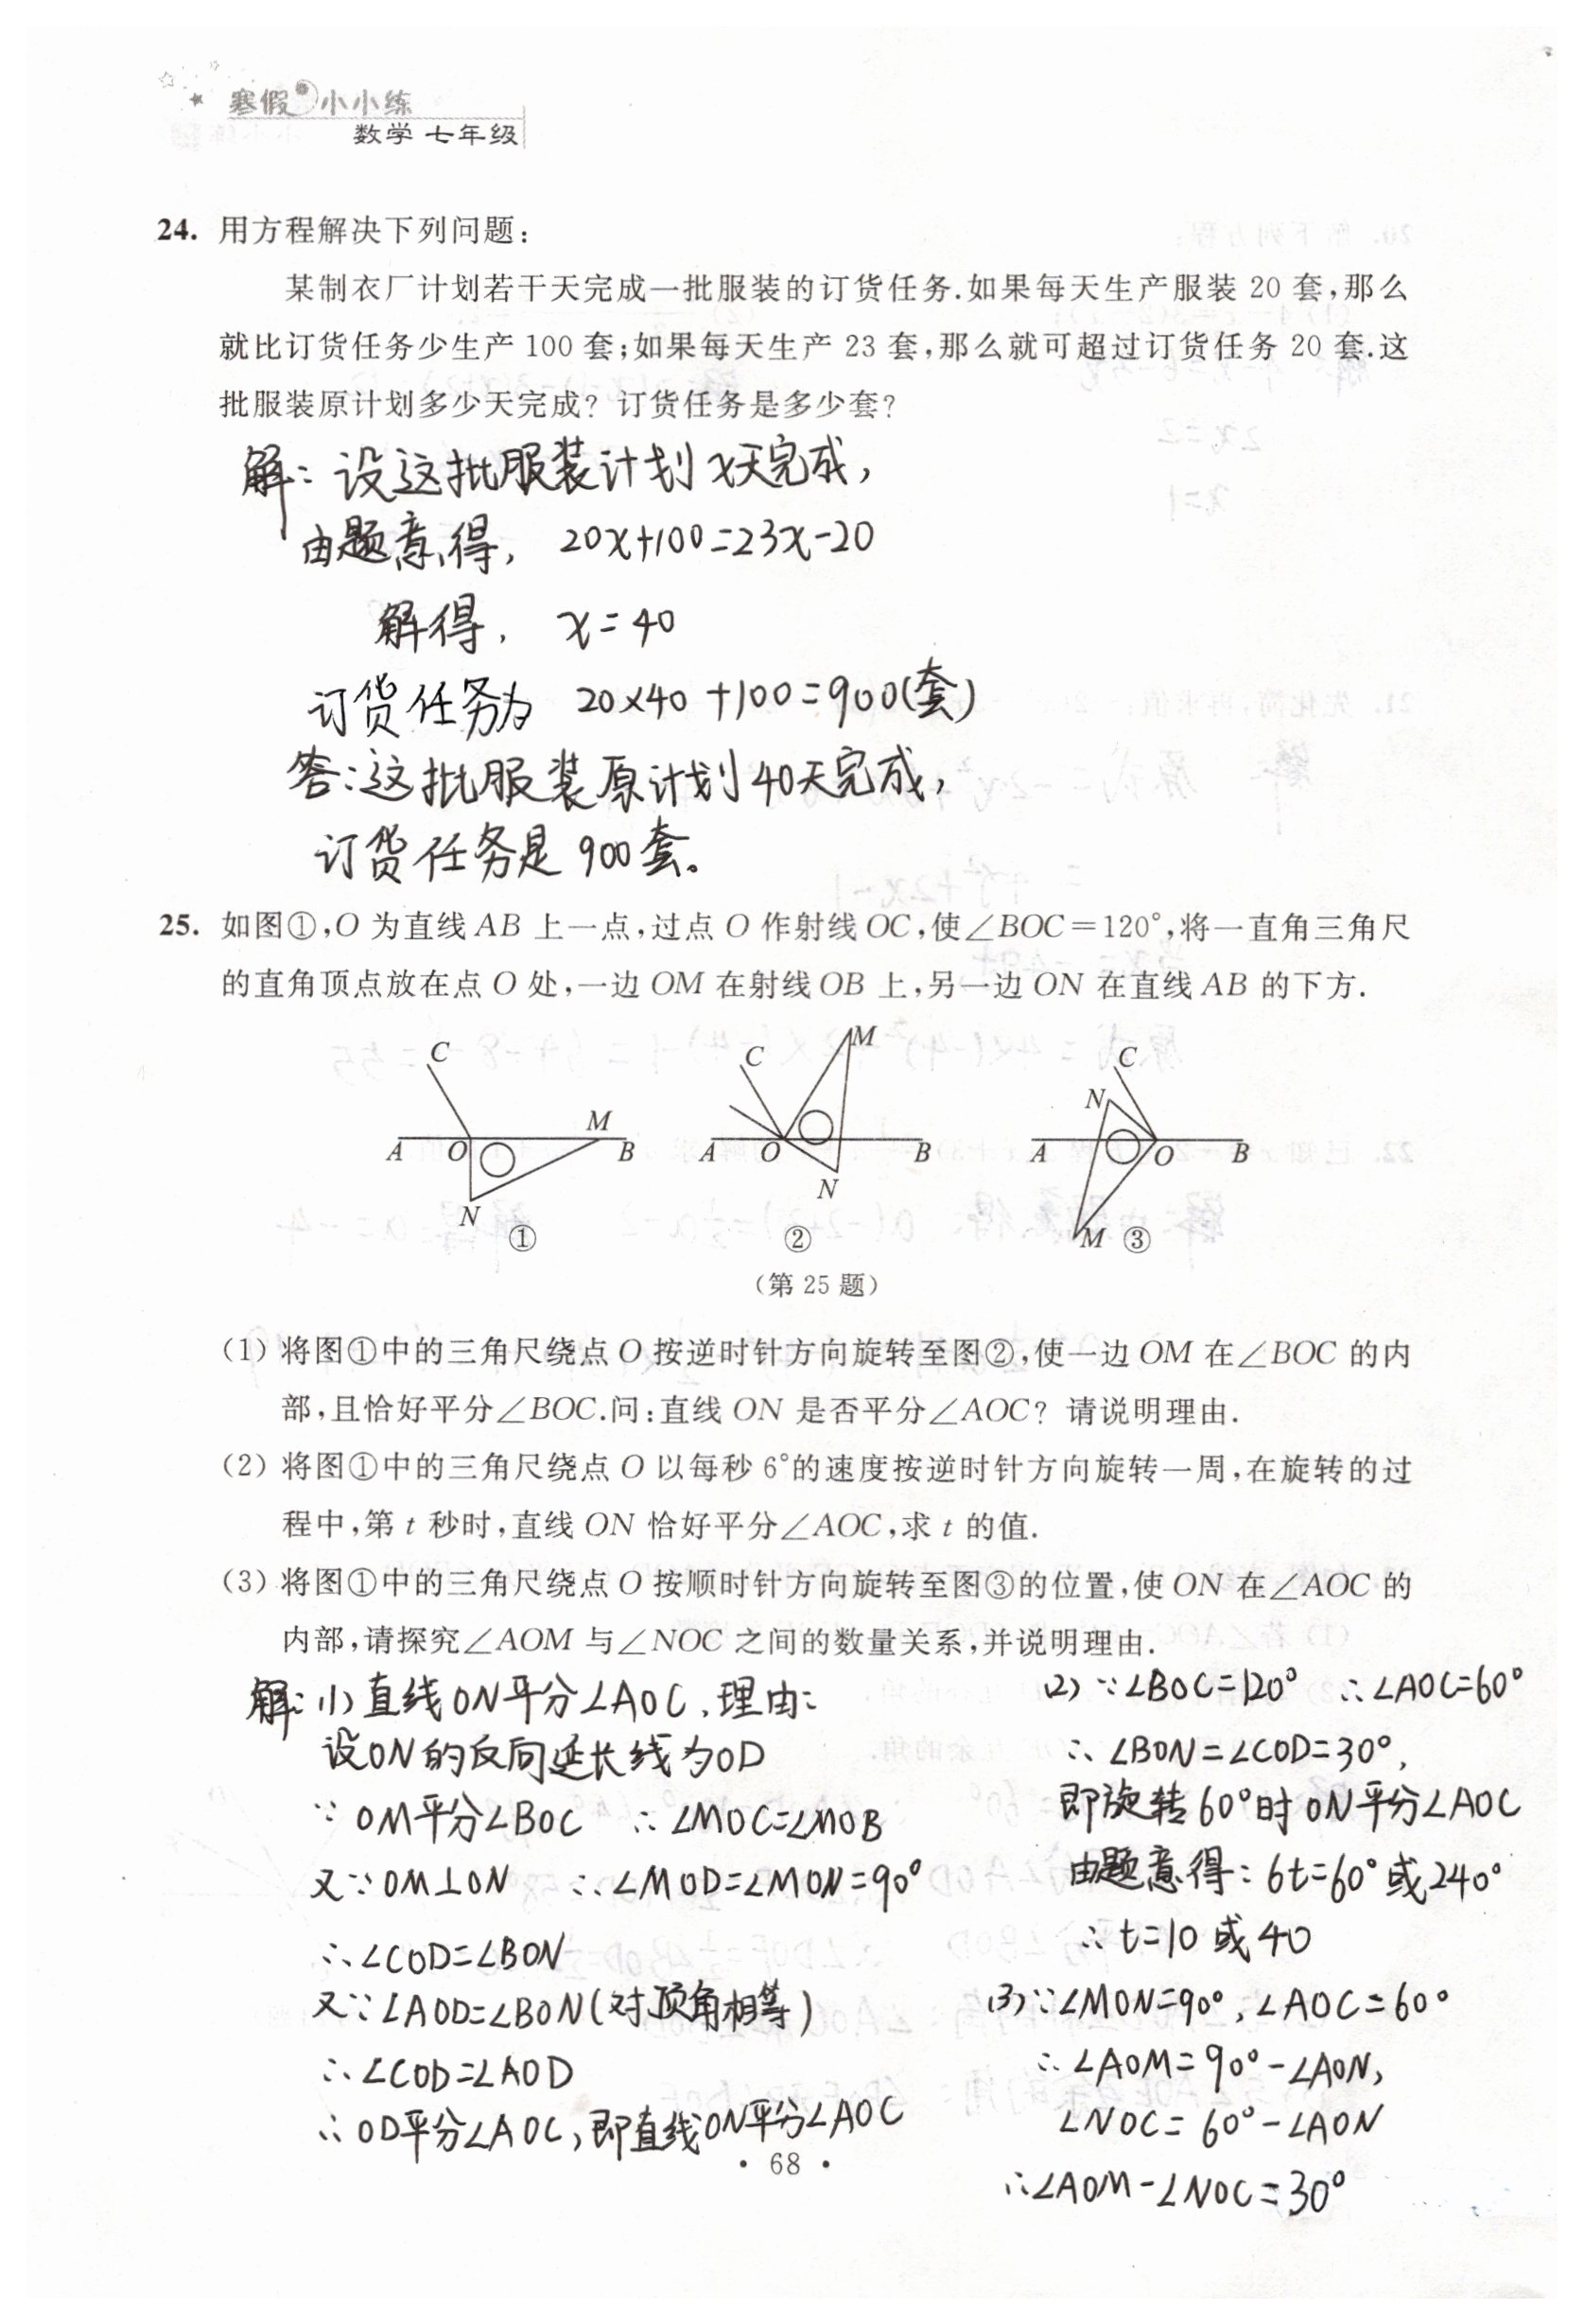 寒假小小练
数学 七年级
24. 用方程解决下列问题:
某制衣厂计划若干天完成一批服装的订货任务.如果每天生产服装 20 套,那么
就比订货任务少生产 100 套;如果每天生产 23 套,那么就可超过订货任务 20 套.这
批服装原计划多少天完成? 订货任务是多少套?
解: 设这批服装计划x天完成,
由题意得, 20x+100=23x-20
解得, x=40
订货任务为 20×40+100=900(套)
答:这批服装原计划40天完成,
订货任务是900套。
25. 如图①,O 为直线 AB 上一点,过点 O 作射线 OC,使∠BOC=120°,将一直角三角尺
的直角顶点放在点 O 处,一边 OM 在射线 OB 上,另一边 ON 在直线 AB 的下方.
C M C C
M N
A O B A O B A O B
N N M
① ② ③
(第 25 题)
(1) 将图①中的三角尺绕点 O 按逆时针方向旋转至图②,使一边 OM 在∠BOC 的内
部,且恰好平分∠BOC.问:直线 ON 是否平分∠AOC? 请说明理由.
(2) 将图①中的三角尺绕点 O 以每秒 6°的速度按逆时针方向旋转一周,在旋转的过
程中,第 t 秒时,直线 ON 恰好平分∠AOC,求 t 的值.
(3) 将图①中的三角尺绕点 O 按顺时针方向旋转至图③的位置,使 ON 在∠AOC 的
内部,请探究∠AOM 与∠NOC 之间的数量关系,并说明理由.
解:(1)直线ON平分∠AOC,理由:
设ON的反向延长线为OD
∵OM平分∠BOC ∴∠MOC=∠MOB
又∵OM⊥ON ∴∠MOD=∠MON=90°
∴∠COD=∠BON
又∵∠AOD=∠BON(对顶角相等)
∴∠COD=∠AOD
∴OD平分∠AOC,即直线ON平分∠AOC
(2)∵∠BOC=120° ∴∠AOC=60°
∴∠BON=∠COD=30°,
即旋转60°时ON平分∠AOC
由题意得:6t=60°或240°
∴t=10或40
(3)∵∠MON=90°,∠AOC=60°
∴∠AOM=90°-∠AON,
∠NOC=60°-∠AON
∴∠AOM-∠NOC=30°
• 68 •